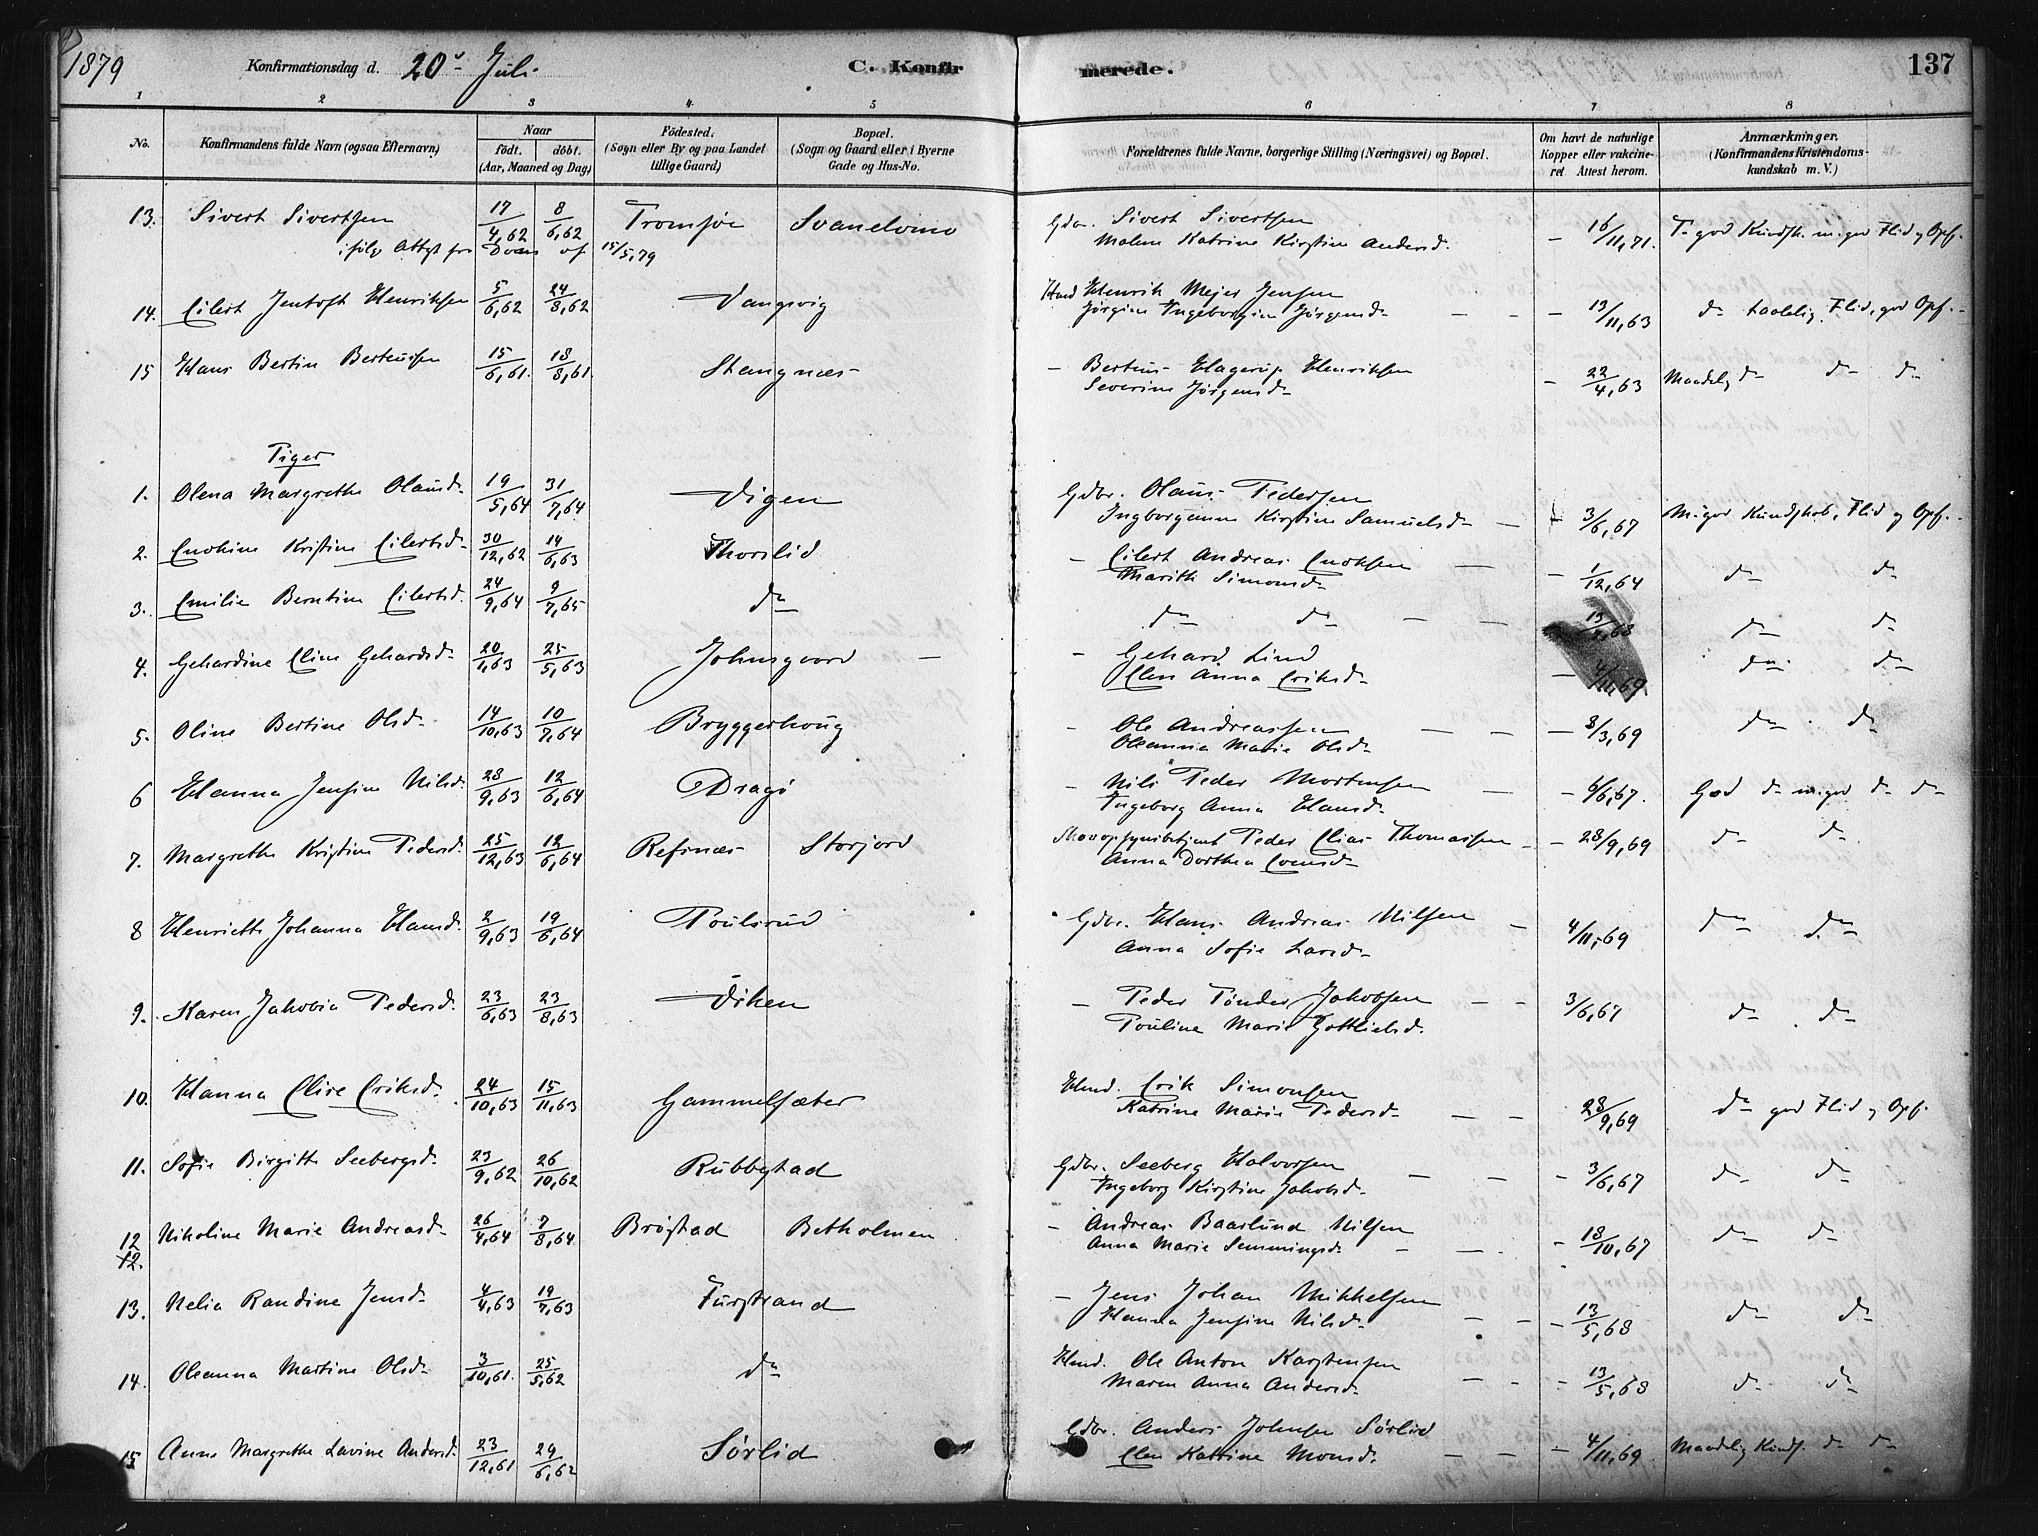 1879 Konfirmationsdag d. 20 Juli. C. Konfir merede. 137
1 2 3 4 5 6 7 8
No. Konfirmandens fulde Navn (ogsaa Efternavn) Naar født. døbt. (Aar, Maaned og Dag) Fødested. (Sogn eller By og paa Landet tillige Gaard) Bopæl. (Sogn og Gaard eller i Byerne Gade og Hus-No. Forældrenes fulde Navne, borgerlige Stilling (Næringsvei) og Bopæl. Om havt de naturlige Kopper eller vakcineret Attest herom. Anmærkninger. (Konfirmandens Kristendomskundskab m. V.)
13. Sivert Sivertsen 17/4,62 8/6,62 Tromsøe Svanelvmo Gdbr. Sivert Sivertsen – 16/11,71. T. god Kundsk. m. god Flid og Opf.
ifølg Attest fra af 15/5,79 Malene Katrine Kirstine Andersd.
14. Eilert Jentoft Henriksen 5/6,62 24/8,62 Vangsvig Hmd Henrik Mejer Jensen – 13/11,63 do taalelig Flid, god Opf.
Jørgine Ingeborgine Jørgensd.
15 Hans Bertin Berteussen 15/6,61. 18/8,61. Stangnæs – Berteus Hagerup Henriksen – 22/4,63 Maadelig do do do
Severine Jørgensd.
Piger
1. Olena Margrethe Olausd. 19/5,64 31/7,64 Vigen Gdbr. Olaus Pedersen 3/6,67 M. god Kundskab, Flid og Opf.
Ingborganna Kirstine Samuelsd.
2. Enokine Kristine Eilertsd. 30/12,62 14/6,63 Thorslid – Eilert Andreas Enoksen – 1/12,64 do do
Marith Simonsd.
3. Emilie Berntine Eilertsd. 24/9,64 9/7,65 do do do 13/ ,68 do do
4. Gehardine Eline Gehardsd. 20/1,63 25/5,63 Johnsgaard – Gehard Lind – 4/11,69 do do
Elen Anna Eriksd.
5. Oline Bertine Olsd. 14/10,63 10/7,64 Bryggerhoug – Ole Andreassen – 8/3,69 do do
Oleanna Marie Olsd.
6 Hanna Jensine Nilsd. 28/9,63 12/6,64 Dragø – Nils Peder Mortensen – 6/6,67. God do m. god do do
Ingeborg Anna Hansd.
7. Margrethe Kristine Pedersd. 25/12,63 12/6,64 Refsnæs Storjord Skovopsynsbetjent Peder Elias Thomassen – 28/9,69 do do
Anna Dorthea Evensd.
8 Henriette Johanna Hansd. 2/9,63 19/6,64 Poulsrud Gdbr. Hans Andreas Nilsen – 4/11,69 do do
Anna Sofie Larsd.
9. Karen Jakobia Pedersd. 23/6,63 23/8,63 Viken – Peder Tønder Jakobsen 3/6,67 do do
Pouline Marie Gottliebsd.
10. Hanna Elise Eriksd. 24/10,63 15/11,63 Gammelsæter Hmd. Erik Simonsen 28/9,69 do god Flid og Opf.
Katrine Marie Pedersd.
11. Sofie Birgitte Seebergsd. 23/9,62 26/10,62 Rubbestad Gdbr. Seeberg Halvorsen – 3/6,67 do do
Ingeborg Kirstine Jakobsd.
12 Nikoline Marie Andreasd. 26/4,64 7/8,64 Brøstad Betholmen – Andreas Baarlund Nilsen – 18/10,67 do do
12. Anna Marie Semmingsd.
13. Nelia Randine Jensd. 4/4,63 19/7,63 Furstrand – Jens Johan Mikkelsen – 13/5,68 do do
Hanna Jensine Nilsd.
14. Oleanna Martine Olsd. 3/10,61. 25/5,62 do Hmd. Ole Anton Karstensen – 13/5,68 do do
Maren Anna Andersd.
15 Anne Margrethe Lavine Andersd. 23/12,61 29/6,62 Sørlid Gdbr. Anders Johnsen Sørlid – 4/11,69. Maadelig Kunds. do do
Elen Katrine Monsd.